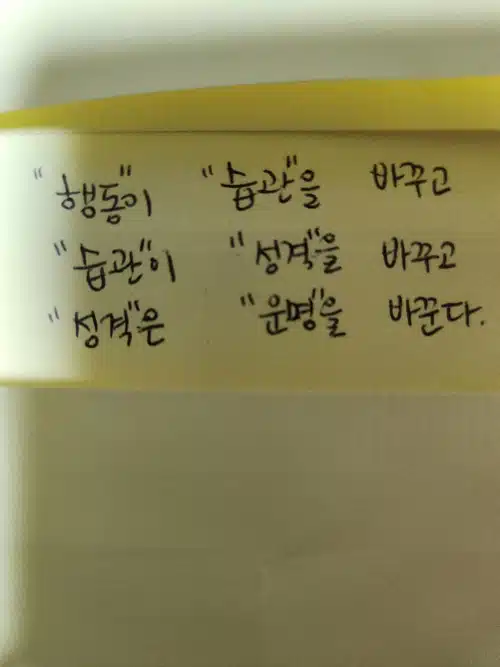 "행동"이 "습관"을 바꾸고
"습관"이 "성격"을 바꾸고
"성격"은 "운명"을 바꾼다.